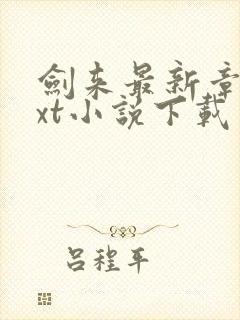 劍来最新章
xt小説下載
吕程平